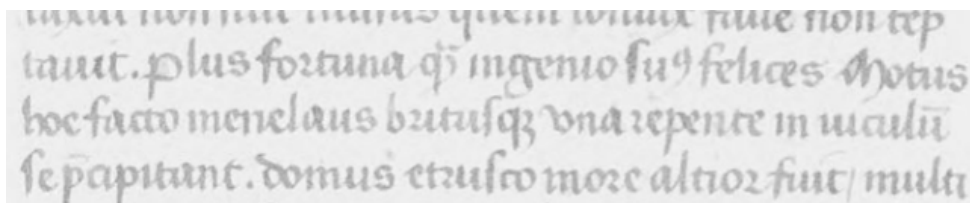 non quem non rep
tauit. Plus fortuna q̃ ingenio suꝰ felices Motus
hoc facto menelaus britusqꝫ vna repente in uiculũ
se p̃cipitant. domus etrusco more altior fuit / multi